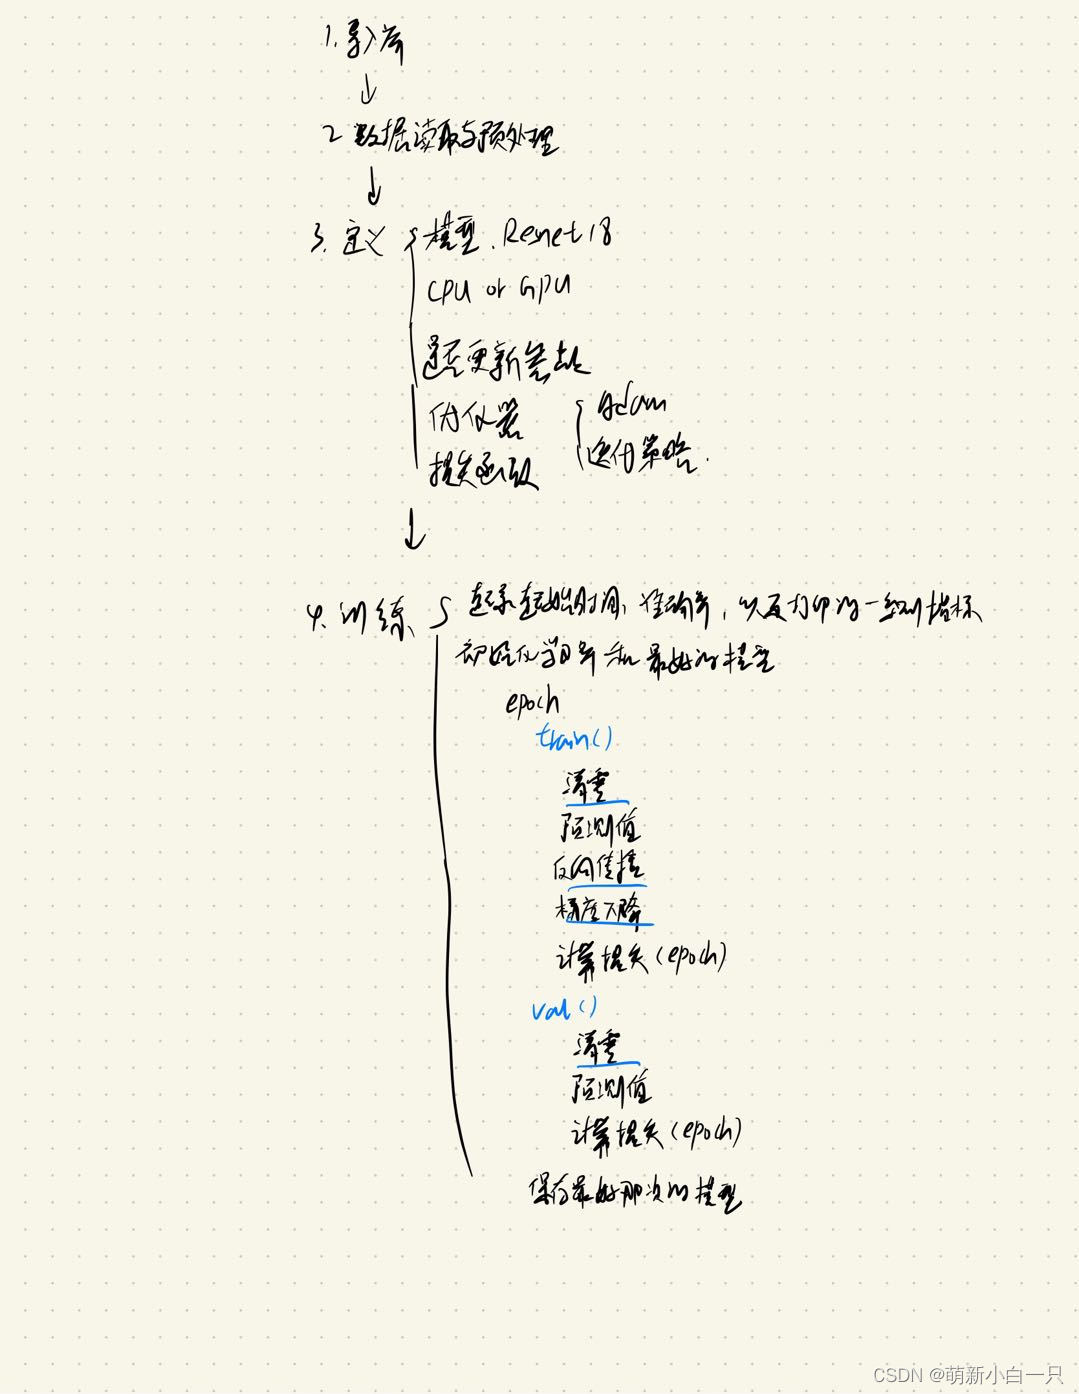 1. 导入库
↓
2 数据读取与预处理
↓
3. 定义 模型. Resnet18
CPU or GPU
是否更新参数
优化器 adam
损失函数 迭代策略.
↓
4. 训练 记录起始时间, 准确率, 以及打印的一系列指标
初始化学习率和最好的模型
epoch
train()
清零
预测值
反向传播
梯度下降
计算损失(epoch)
val()
清零
预测值
计算损失(epoch)
保存最好那次的模型
CSDN @萌新小白一只